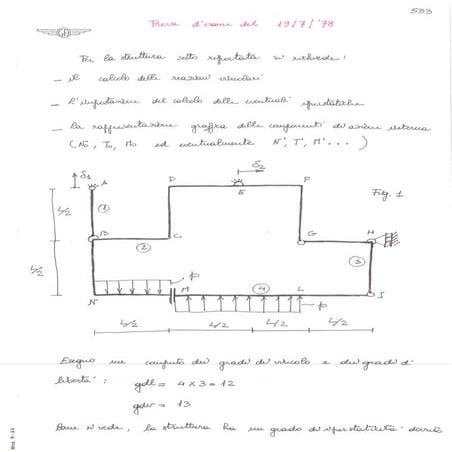 533
Prova d'esame del 19/7/'78
Per la struttura sotto riportata si richiede:
— il calcolo delle reazioni vincolari
— l'impostazione del calcolo delle eventuali iperstatiche
— la rappresentazione grafica delle componenti di azione interna
(No, To, Mo ed eventualmente N', T', M'...)
δ1 A D δ2 E F Fig. 1
L/2 1
B 2 C G H
L/2 p 3
N M 4 L I
p
L/2 L/2 L/2 L/2
Eseguo un computo dei gradi di vincolo e dei gradi di
libertà:
gdl = 4 x 3 = 12
gdv = 13
Come si vede, la struttura ha un grado di iperstaticità dovuto